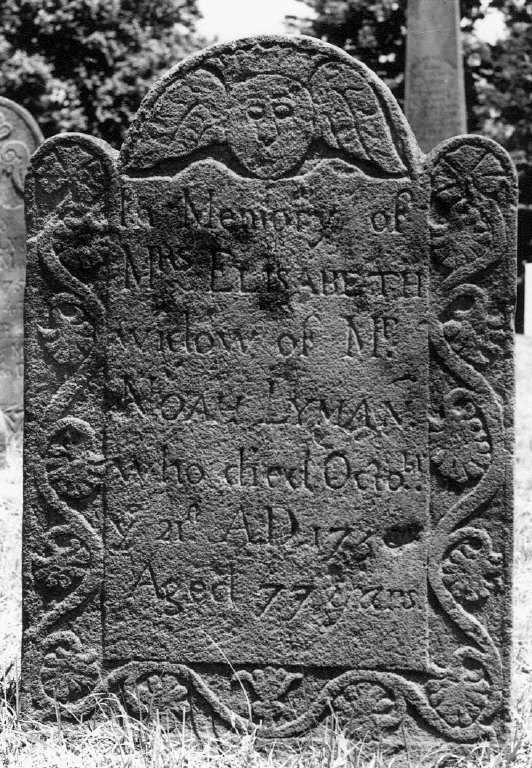 In Memory of
MRS. ELISABETH
widow of MR.
NOAH LYMAN
who died Octobr.
ye 21st A.D.
Aged 77 years